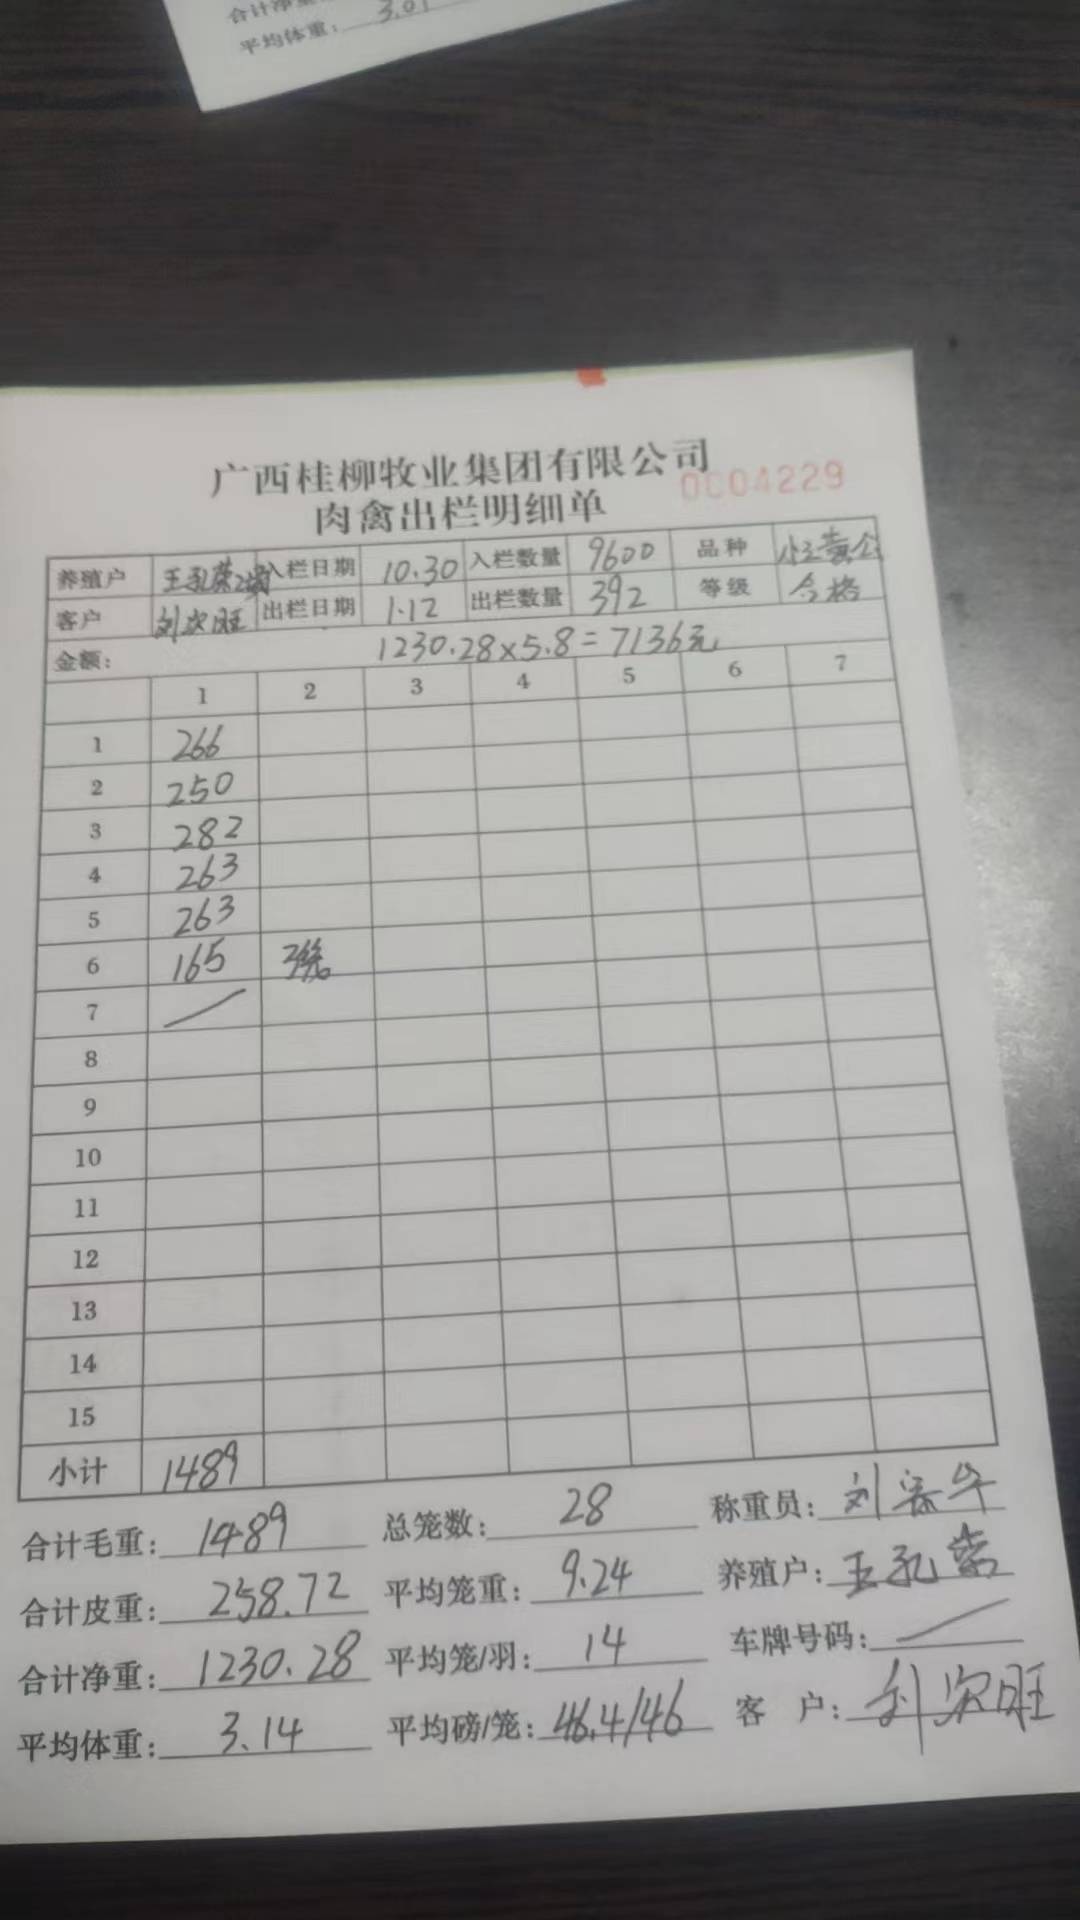 合计净重:
平均体重: 3.01
广西桂柳牧业集团有限公司
0004229
肉禽出栏明细单
养殖户 王孔荣 入栏日期 10.30 入栏数量 9600 品种
客户 刘次旺 出栏日期 1.12 出栏数量 392 等级 合格
金额: 1230.28×5.8=7136元
1 2 3 4 5 6 7
1 266
2 250
3 282
4 263
5 263
6 165 3笼
7
8
9
10
11
12
13
14
15
小计 1489
合计毛重: 1489 总笼数: 28 称重员: 刘
合计皮重: 258.72 平均笼重: 9.24 养殖户: 王孔荣
合计净重: 1230.28 平均笼/羽: 14 车牌号码:
平均体重: 3.14 平均磅/笼: 46.4/46 客户: 刘次旺